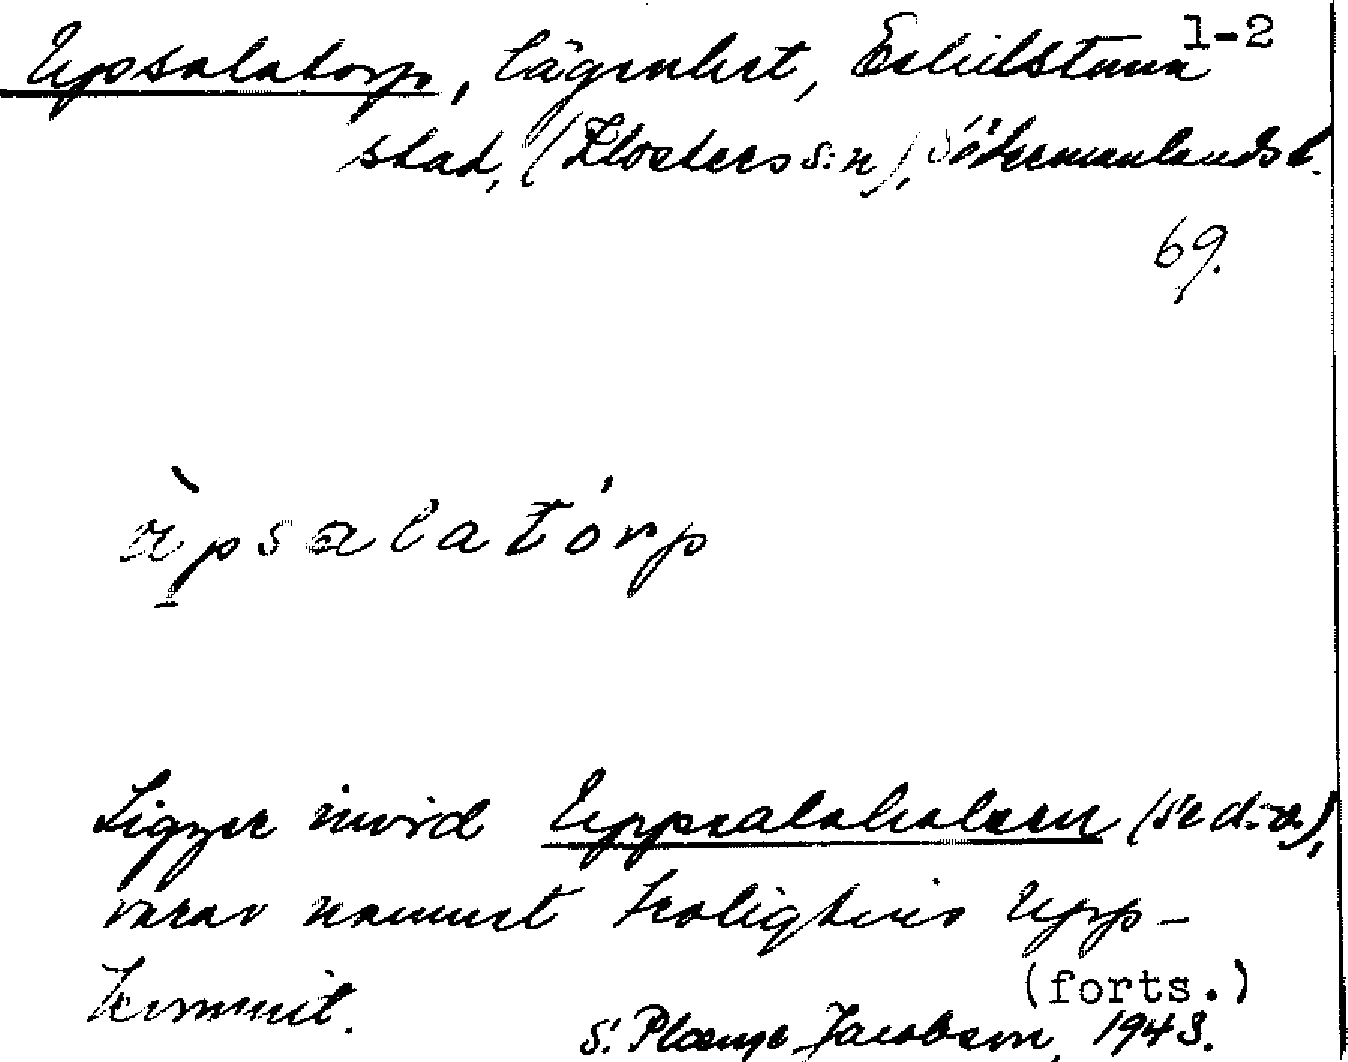 1-2
Upsalatorp, lägenhet, Eskilstuna
stad, (Klosters s:n), Södermanlands l.
69.
ùpsalatórp
Ligger invid Uppsalahalsen (se d.o.),
varav namnet troligtvis upp-
kommit.
(forts.)
S. Plænge Jacobson, 1943.